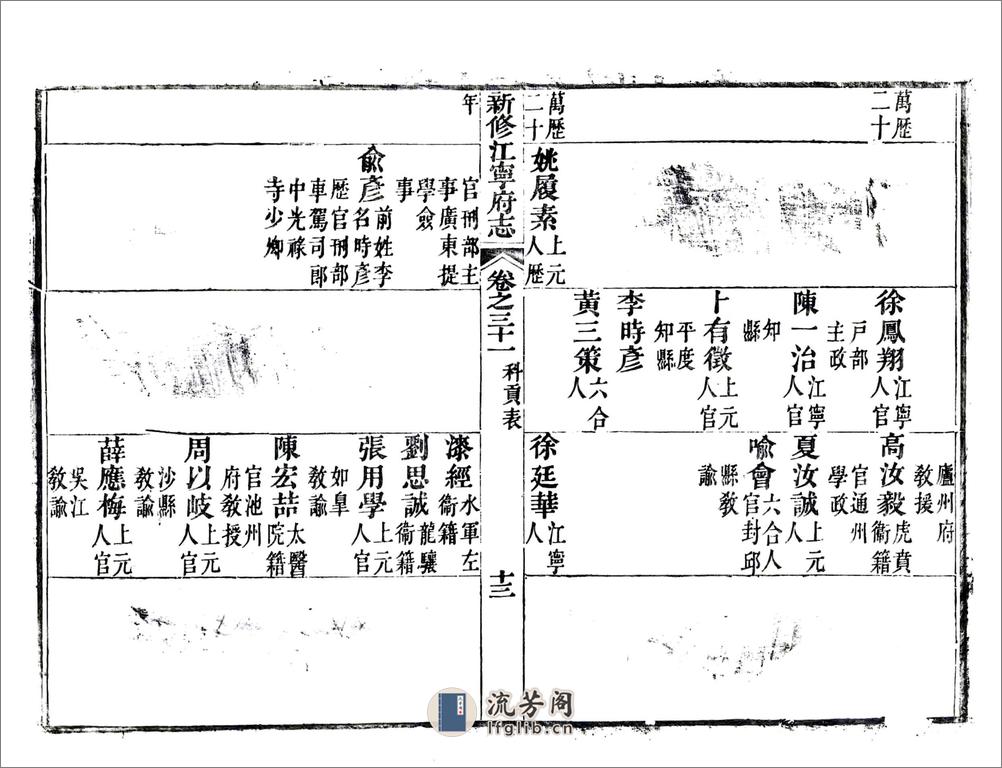 萬歷
二十
徐鳳翔江寧
人官
戶部
主政
陳一治江寧
人官
知
縣
卜有徵上元
人官
平度
知縣
李時彥
黃三策六合
人
廬州府
教授
高汝毅虎賁
衛籍
官通州
學政
夏汝誠上元
人
喻會六合人
官封邱
縣教
諭
萬歷
二十
姚履素上元
人歷
徐廷華江寧
人
新修江寧府志
卷之三十一
科貢表
十三
年
官刑部主
事廣東提
學僉
事
俞彥前姓李
名時彥
歷官刑部
車駕司郎
中光祿
寺少卿
漆經水軍左
衛籍
劉思誠龍驤
衛籍
張用學上元
人官
如皐
教諭
陳宏喆太醫
院籍
官池州
府教授
周以岐上元
人官
沙縣
教諭
薛應梅上元
人官
吳江
教諭
流芳阁
lfglib.cn